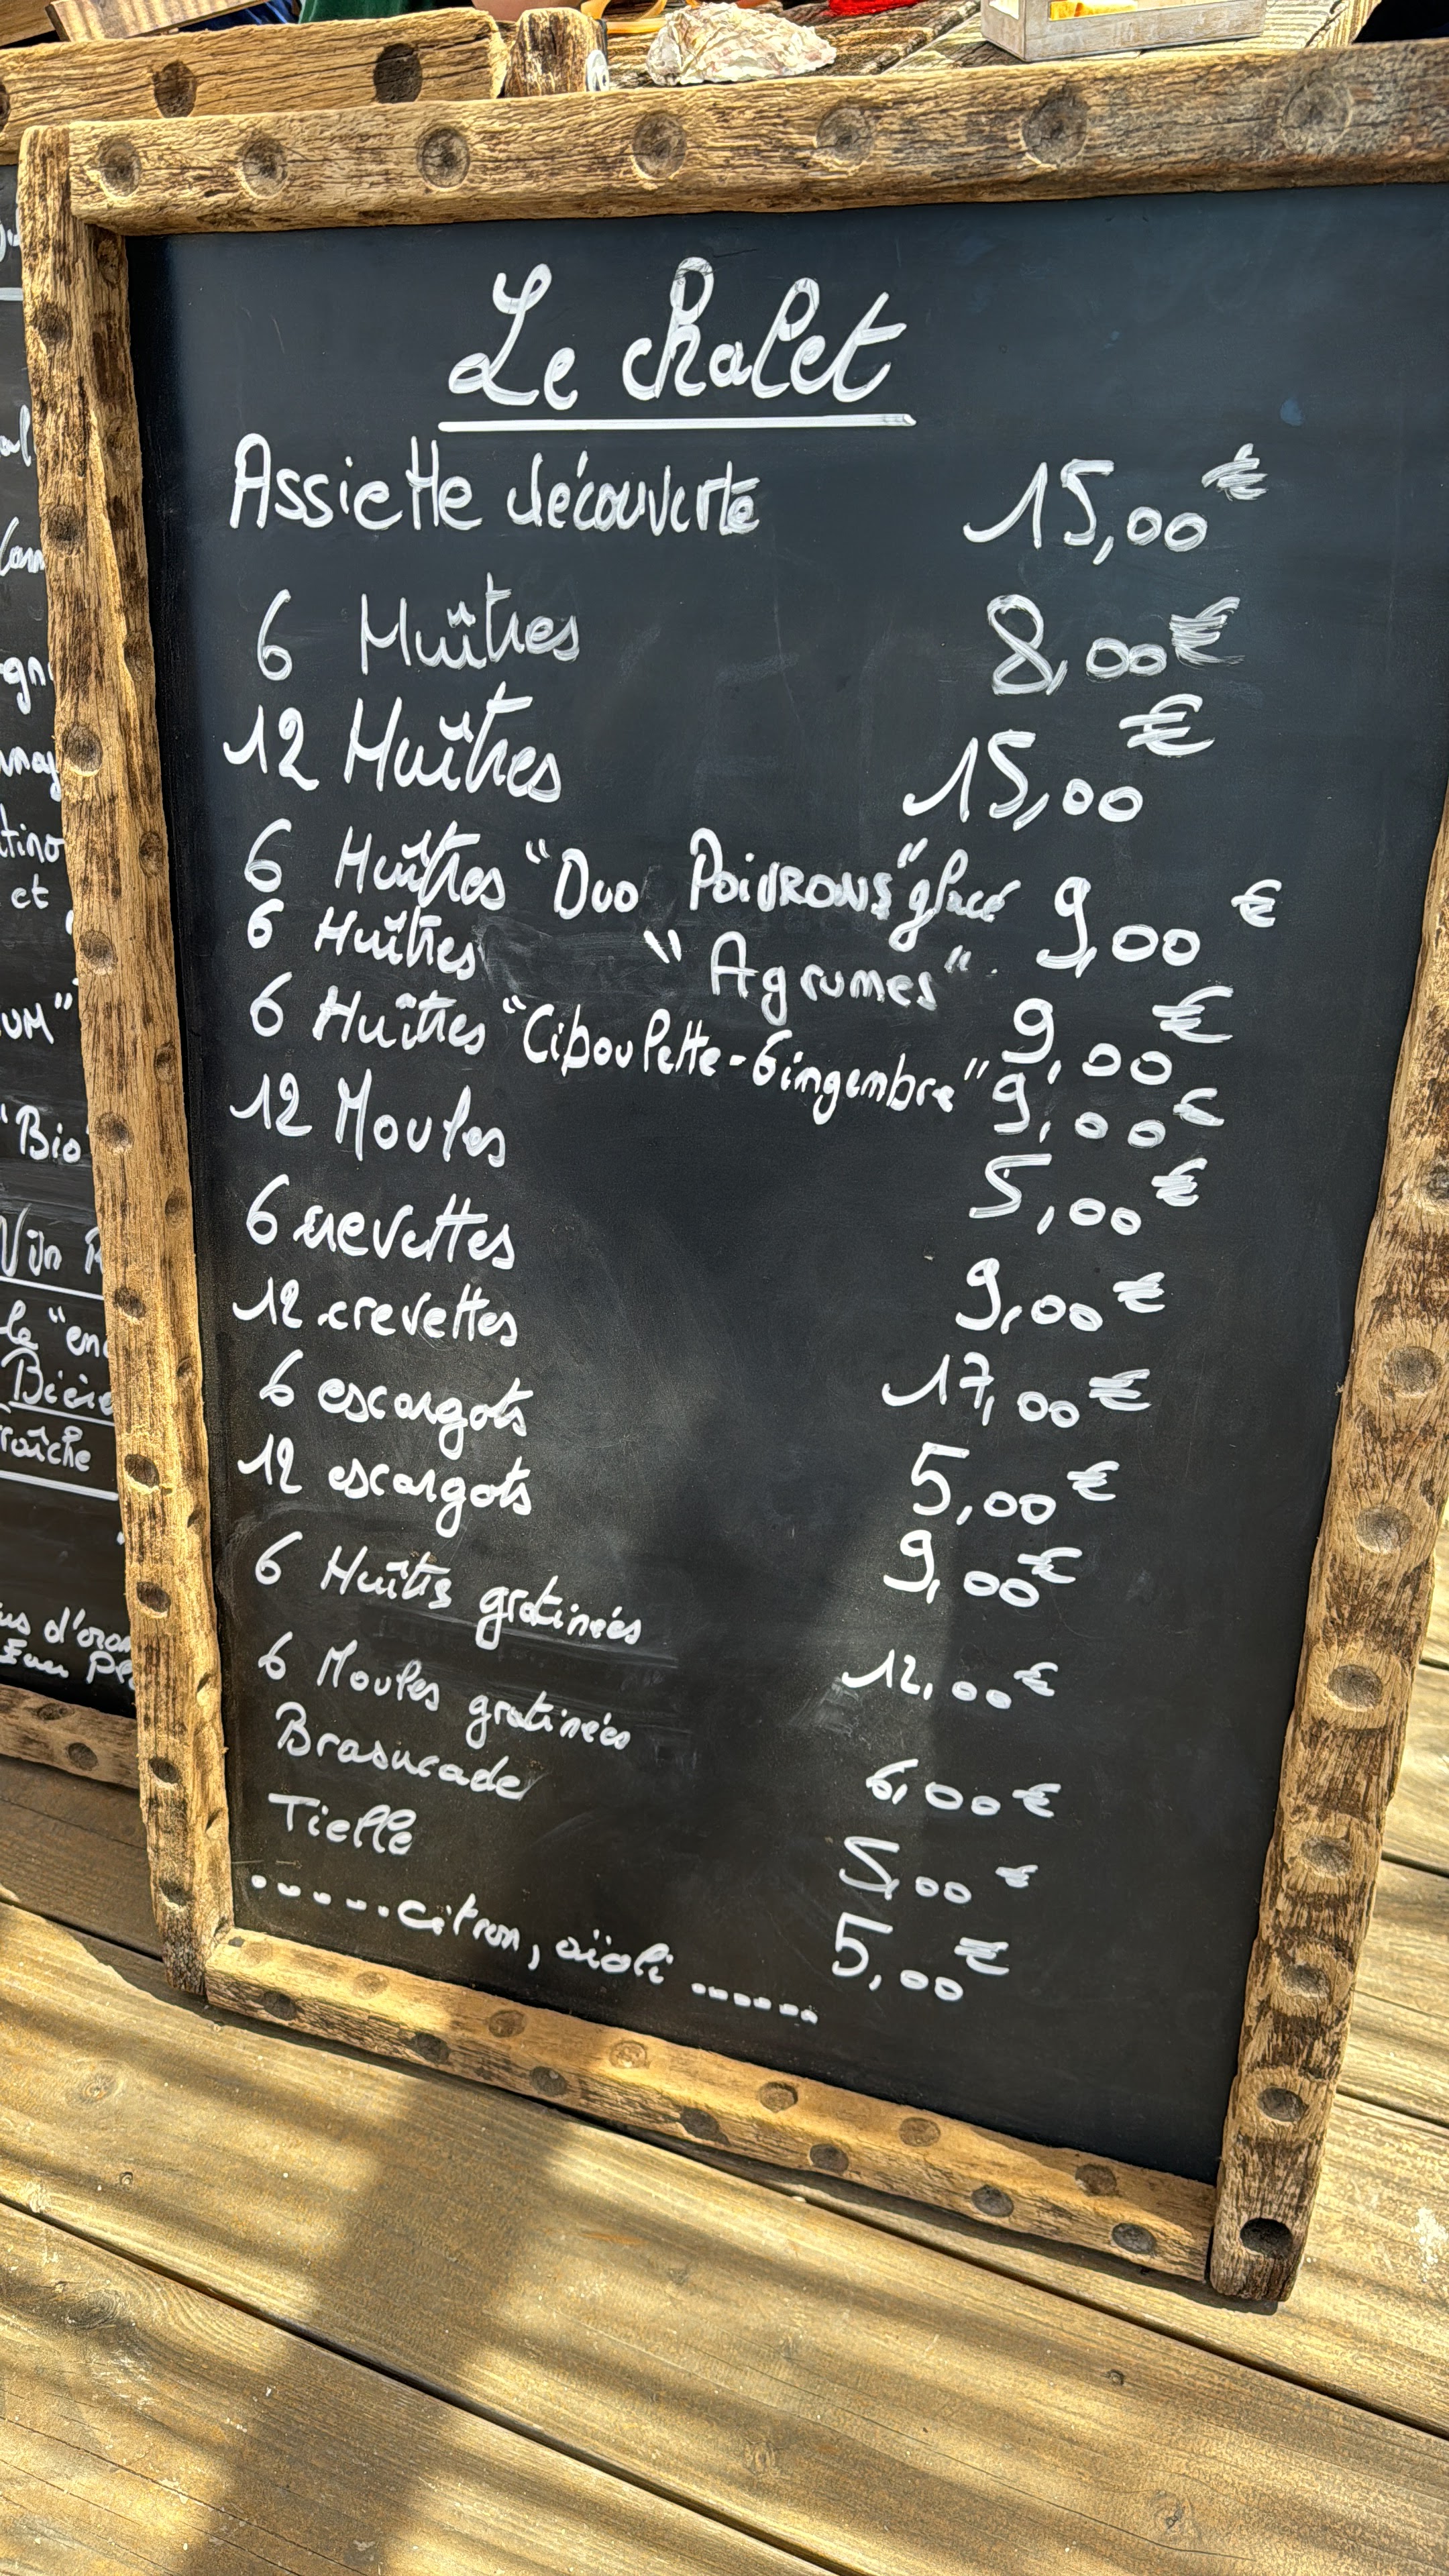 Le chalet
Assiette découverte 15,00 €
6 Huîtres 8,00 €
12 Huîtres 15,00 €
6 Huîtres "Duo Poivrons" glacé 9,00 €
6 Huîtres "Agrumes" 9,00 €
6 Huîtres "Ciboulette-Gingembre" 9,00 €
12 Moules 5,00 €
6 crevettes 9,00 €
12 crevettes 17,00 €
6 escargots 5,00 €
12 escargots 9,00 €
6 Huîtres gratinées 12,00 €
6 Moules gratinées 6,00 €
Brasucade 5,00 €
Tielle 5,00 €
......citron, aïoli ......
et
"Bio"
Vin
Bière